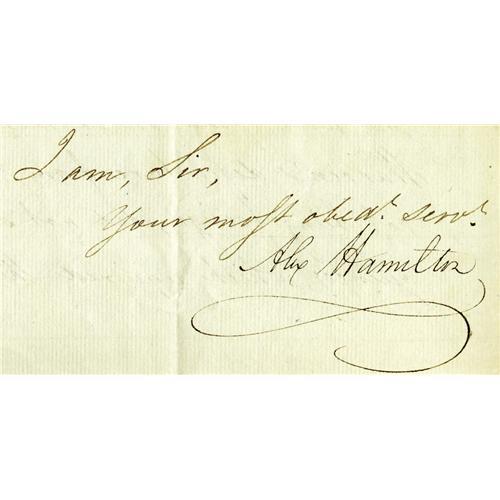 I am, Sir,
Your moſt obedt. servt.
Alex Hamilton